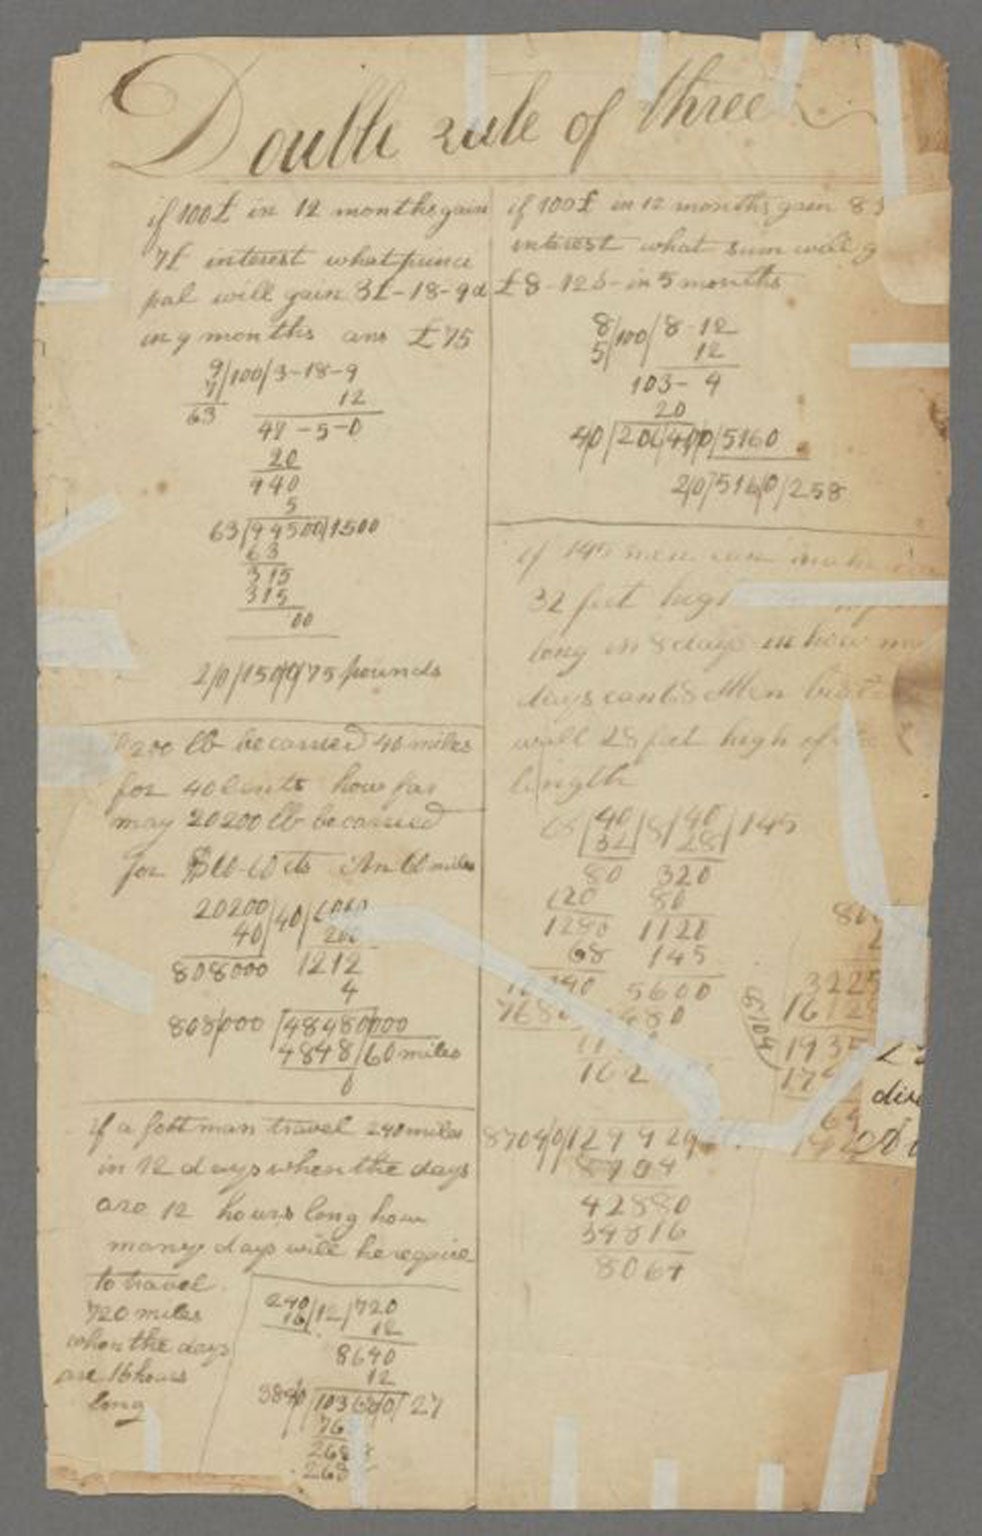 Double rule of three
if 100£ in 12 months gain
7£ interest what princi
pal will gain 3£-18-9d
in 9 months ans £75
9/100/3-18-9
7 12
63 47-5-0
20
940
5
63/94500/1500
63
315
315
00
2/0/150/0/75 pounds
200 lb be carried 40 miles
for 40 Cents how far
may 20200 lb be carried
for $60-60 cts An 60 miles
20200/40/6060
40 200
808000 1212
4
808/000 /48480000
4848/60 miles
0
if a foot man travel 240 miles
in 12 days when the days
are 12 hours long how
many days will he require
to travel
720 miles
when the days
are 16 hours
long
240/12/720
16 12
8640
12
384/0 /10368/0/27
76
268
268
if 100£ in 12 months gain 8
interest what sum will g
£8-12s-in 5 months
8/100/8-12
5 12
103-4
20
40/2064/00/5160
2/0/516/0/258
if 145 men can make
32 feet high
long in 8 days in how
days can 68 Men
wall 28 feet high of
length
68/40/8/40/145
32 28
80 320
120 80
1280 1120
68 145
10240 5600
768 480
8704/0/129920
8704
42880
34816
8064
3225
1612
1935
8704
dive